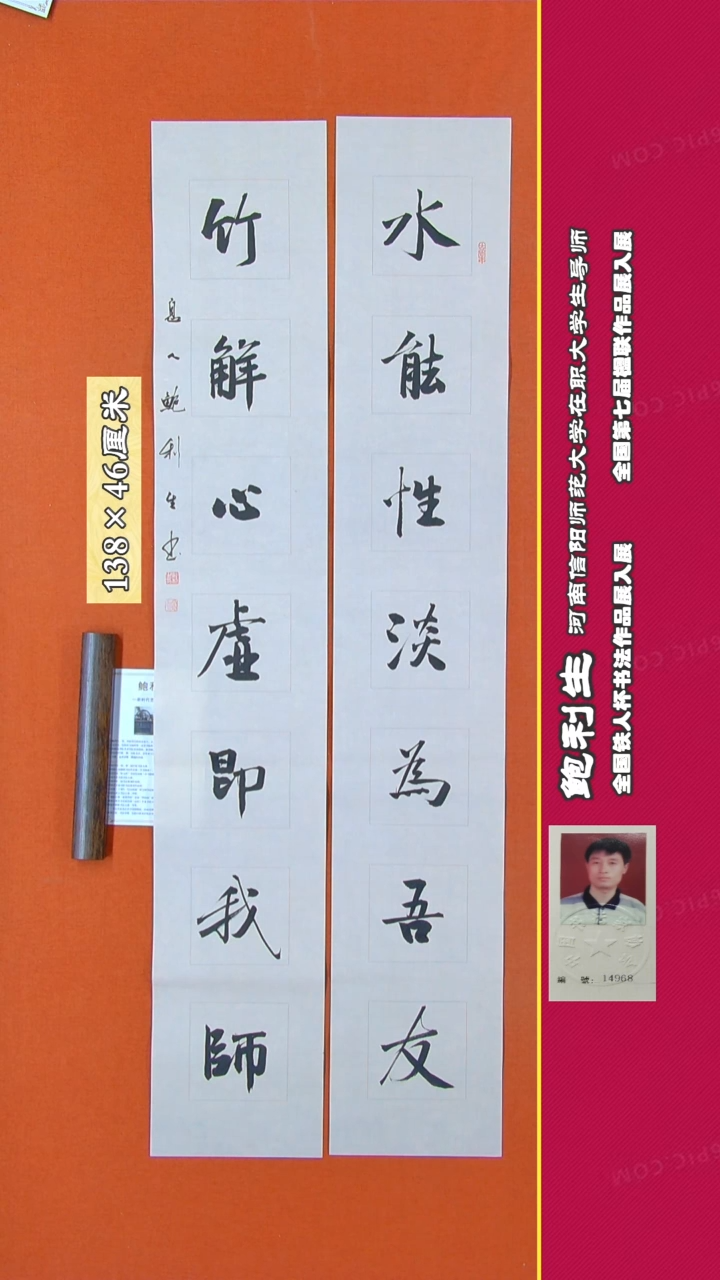 水能性淡為吾友
竹解心虚即我師
息人鲍利生書
138×46厘米
鲍利生 河南信阳师范大学在职大学生导师
全国铁人杯书法作品展入展 全国第七届楹联作品展入展
編 號：14968